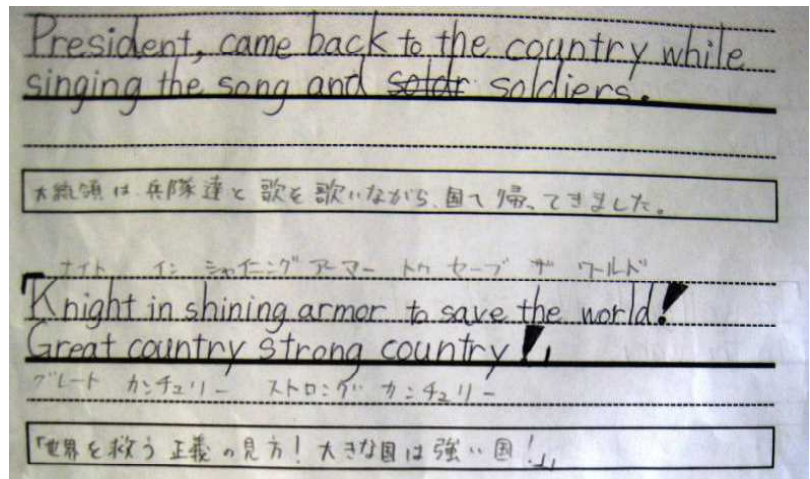 President, came back to the country while
singing the song and soldr soldiers.
大統領は兵隊達と歌を歌いながら、国へ帰ってきました。
ナイト イン シャイニング アーマー トゥ セーブ ザ ワールド
「Knight in shining armor to save the world!
Great country strong country!」
グレート カンチュリー ストロング カンチュリー
「世界を救う正義の見方!大きな国は強い国!」